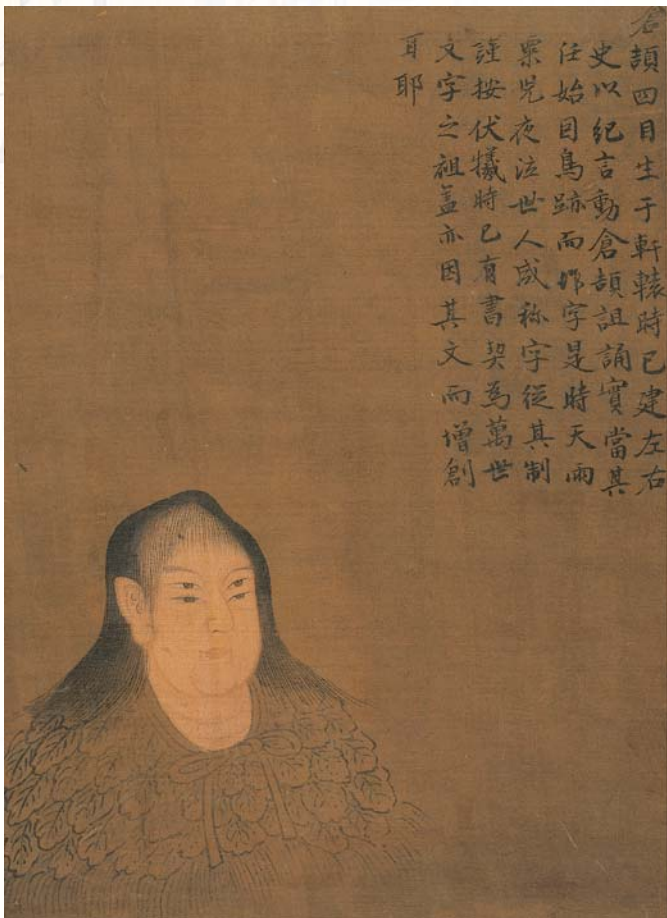 倉頡四目生于軒轅時已建左右
史以紀言動倉頡詛誦實當其
任始因鳥跡而作字是時天雨
粟鬼夜泣世人咸称字從其制
謹按伏犧時已有書契爲萬世
文字之祖葢亦因其文而增創
耳耶